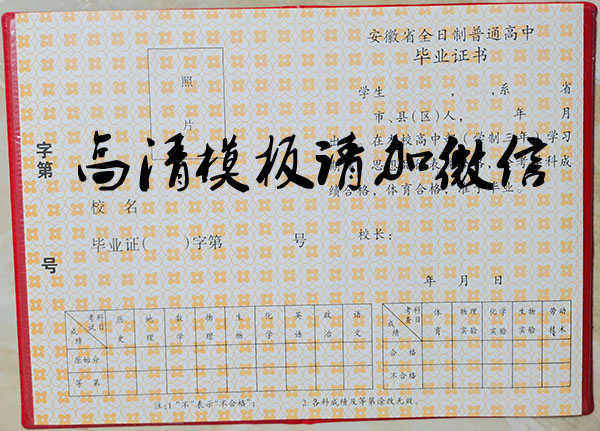 安徽省全日制普通高中
毕业证书
照
片
学生 , ,系 省
市、县(区)人, 年 月
在 校高中 (学制三年)学习
科成
绩合格,体育合格,准予毕业。
高清模板请加微信
字第
号
校 名
毕业证( )字第 号
校长:
年 月 日
考试科目 历史 地理 数学 物理 生物 化学 英语 政治 语文
成绩
原始分
等 第
考查科目 体育 物理实验 化学实验 生物实验 劳动技术
成绩
合 格
不合格
注:1."不"表示"不合格"; 2.各科成绩及等第涂改无效。